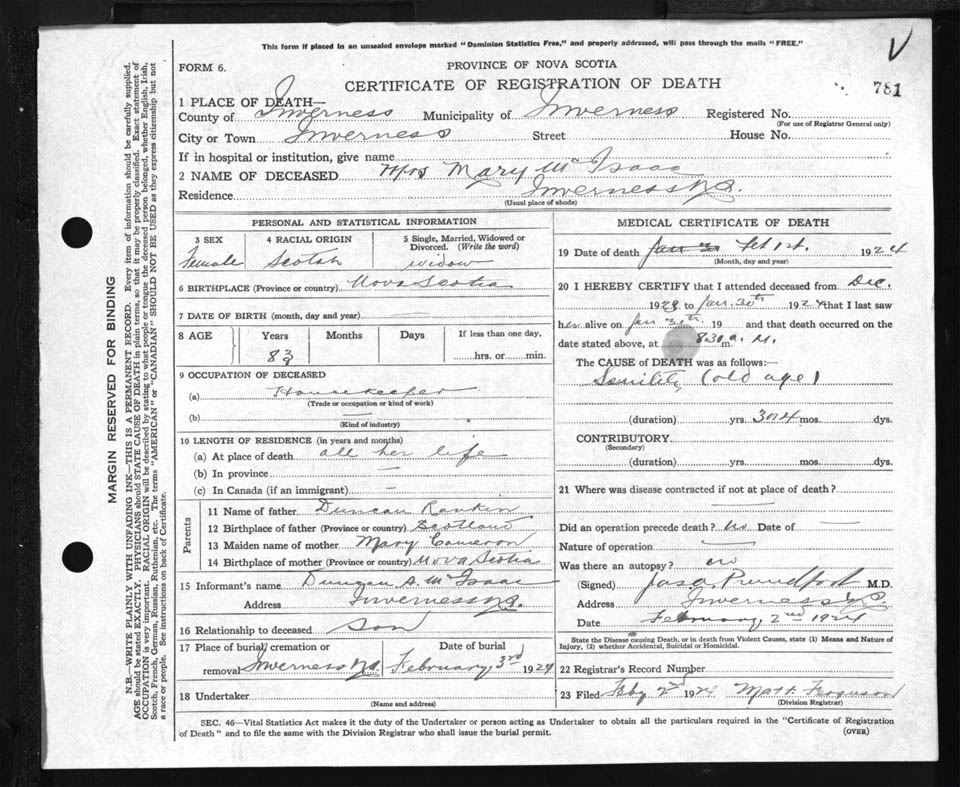 This form if placed in an unsealed envelope marked "Dominion Statistics Free," and properly addressed, will pass through the mails "FREE."
V
FORM 6.
PROVINCE OF NOVA SCOTIA
CERTIFICATE OF REGISTRATION OF DEATH
781
1 PLACE OF DEATH—
County of Inverness Municipality of Inverness Registered No.
(For use of Registrar General only)
City or Town Inverness Street House No.
If in hospital or institution, give name
2 NAME OF DECEASED Mrs Mary McIsaac
Residence Inverness N.S.
(Usual place of abode)
PERSONAL AND STATISTICAL INFORMATION
3 SEX
Female
4 RACIAL ORIGIN
Scotch
5 Single, Married, Widowed or
Divorced. (Write the word)
widow
6 BIRTHPLACE (Province or country) Nova Scotia
7 DATE OF BIRTH (month, day and year) —
8 AGE Years Months Days If less than one day,
83 hrs. or min.
9 OCCUPATION OF DECEASED
(a) Housekeeper
(Trade or occupation or kind of work)
(b) —
(Kind of industry)
10 LENGTH OF RESIDENCE (in years and months)
(a) At place of death all her life
(b) In province —
(c) In Canada (if an immigrant) —
Parents
11 Name of father Duncan Rankin
12 Birthplace of father (Province or country) Scotland
13 Maiden name of mother Mary Cameron
14 Birthplace of mother (Province or country) Nova Scotia
15 Informant's name Duncan A. McIsaac
Address Inverness N.S.
16 Relationship to deceased son
17 Place of burial, cremation or Date of burial
removal Inverness N.S. February 3rd 1924
18 Undertaker
(Name and address)
MEDICAL CERTIFICATE OF DEATH
19 Date of death Feb 1st. 1924
(Month, day and year)
20 I HEREBY CERTIFY that I attended deceased from Dec.
1923 to Jan. 30th 1924 that I last saw
her alive on Jan 30th 19 and that death occurred on
date stated above, at 8.30 a. m. M.
The CAUSE of DEATH was as follows:—
Senility (old age)
(duration) yrs. 3 or 4 mos. dys.
CONTRIBUTORY
(Secondary)
(duration) yrs. mos. dys.
21 Where was disease contracted if not at place of death? —
Did an operation precede death? No Date of —
Nature of operation —
Was there an autopsy? no
(Signed) M.D.
Address Inverness N.S.
Date February, 2nd 1924
State the Disease causing Death, or in death from Violent Causes, state (1) Means and Nature of
Injury, (2) whether Accidental, Suicidal or Homicidal.
22 Registrar's Record Number
23 Filed Feby 2nd 1924 Matt. Ferguson
(Division Registrar)
SEC. 46—Vital Statistics Act makes it the duty of the Undertaker or person acting as Undertaker to obtain all the particulars required in the "Certificate of Registration
of Death" and to file the same with the Division Registrar who shall issue the burial permit.
(OVER)
MARGIN RESERVED FOR BINDING
N.B.—WRITE PLAINLY WITH UNFADING INK—THIS IS A PERMANENT RECORD. Every item of information should be carefully supplied.
AGE should be stated EXACTLY. PHYSICIANS should STATE CAUSE OF DEATH in plain terms, so that it may be properly classified. Exact statement of
OCCUPATION is very important. RACIAL ORIGIN will be described by stating to what people or tongue the deceased person belonged, whether English, Irish,
Scotch, French, German, Russian, Ruthenian, etc. The terms "AMERICAN" or "CANADIAN" SHOULD NOT BE USED as they express citizenship but not
a race or people. See instructions on back of Certificate.